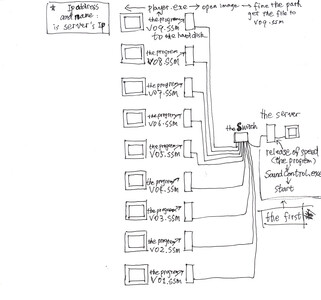 * Ip address
and name
is server's Ip
player.exe → open image → fine the path
get the file to
v09.ssm
the program
v09.ssm
to the harddisk
the program
v08.ssm
the program
v07.ssm
the program
v06.ssm
the program
v05.ssm
the program
v04.ssm
the program
v03.ssm
the program
v02.ssm
the program
v01.ssm
the Switch
the server
release of speed
(the program)
SoundControl.exe
start
the first *